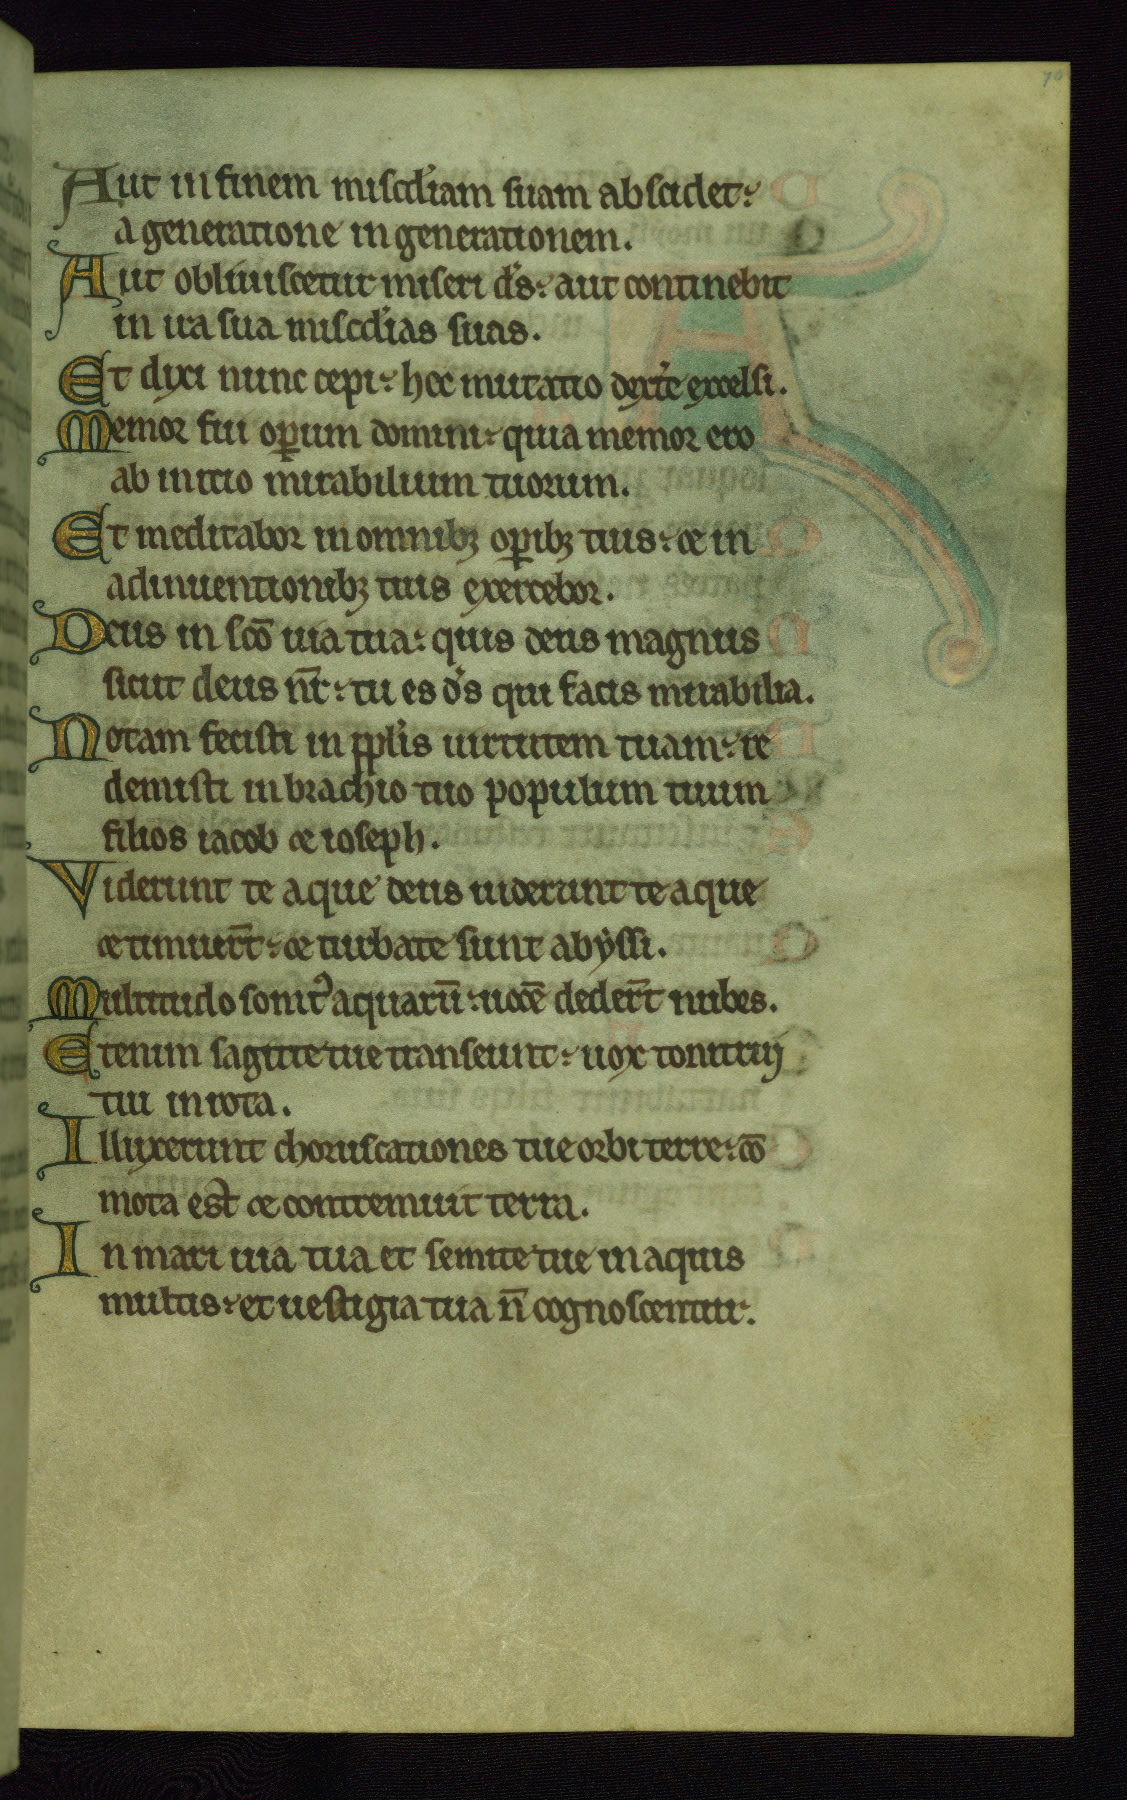 Aut in finem miscd'iam suam abscidet:
a generatione in generationem.
Aut obliuiscetur miseri d's: aut continebit
in ira sua miscd'ias suas.
Et dixi nunc cepi: hec mutatio dext'e excelsi.
Memor fui oꝑum domini: quia memor ero
ab initio mirabilium tuorum.
Et meditabor in omnibꝫ oꝑibꝫ tuis: et in
adinuentionibꝫ tuis exercebor.
Deus in sc̄o uia tua: quis deus magnus
sicut deus nr̄: tu es d's qui facis mirabilia.
Notam fecisti in ppl'is uirtutem tuam: re
demisti in brachio tuo populum tuum
filios iacob et ioseph.
Viderunt te aque deus uiderunt te aque
et timuer̄t: et turbate sunt abyssi.
Multitudo sonit' aquarū: uocē deder̄t nubes.
Etenim sagitte tue transeunt: uox tonitrui
tui in rota.
Illuxerunt choruscationes tue orbi terre: cō
mota est et contremuit terra.
In mari uia tua et semite tue in aquis
multis: et uestigia tua n̄ cognoscentur.